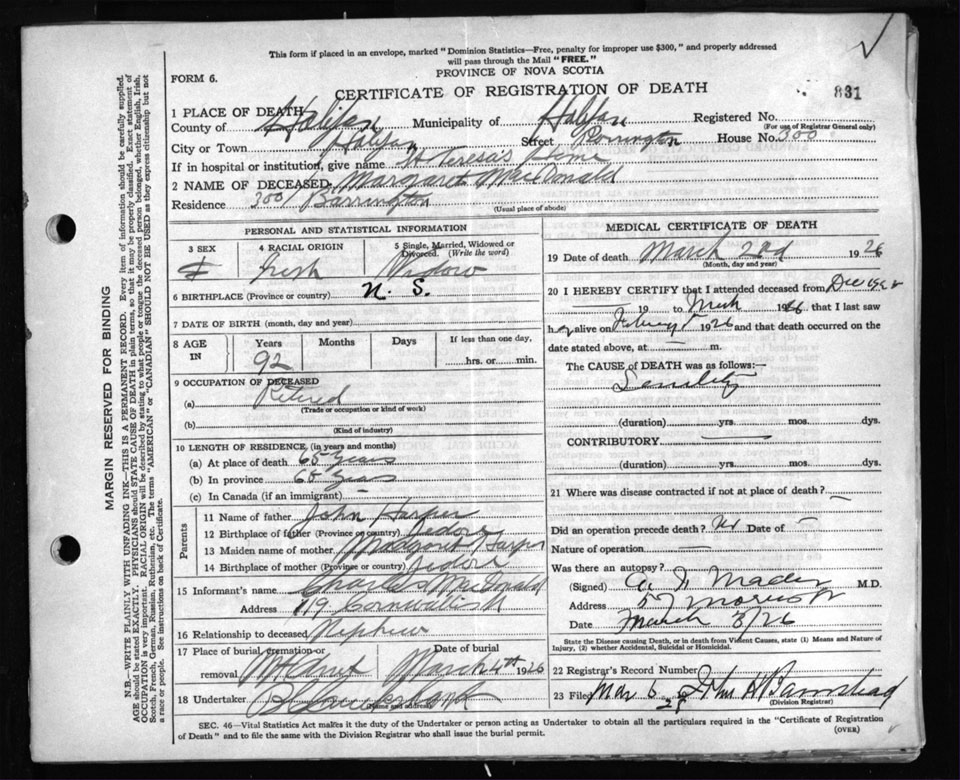 This form if placed in an envelope, marked "Dominion Statistics—Free, penalty for improper use $300," and properly addressed
will pass through the Mail "FREE."
PROVINCE OF NOVA SCOTIA
FORM 6.
CERTIFICATE OF REGISTRATION OF DEATH
831
1 PLACE OF DEATH
County of Halifax Municipality of Halifax Registered No.
(For use of Registrar General only)
City or Town Halifax Street House No. 300
If in hospital or institution, give name St Teresa's Home
2 NAME OF DECEASED Margaret MacDonald
Residence 300 Barrington
(Usual place of abode)
PERSONAL AND STATISTICAL INFORMATION
3 SEX
4 RACIAL ORIGIN
5 Single, Married, Widowed or
Divorced. (Write the word)
F Irish Widow
6 BIRTHPLACE (Province or country) N. S.
7 DATE OF BIRTH (month, day and year)
8 AGE IN
Years Months Days If less than one day,
92
hrs. or min.
9 OCCUPATION OF DECEASED
(a) Retired
(Trade or occupation or kind of work)
(b)
(Kind of industry)
10 LENGTH OF RESIDENCE (in years and months)
(a) At place of death 65 years
(b) In province 65 years
(c) In Canada (if an immigrant) —
Parents
11 Name of father John Harper
12 Birthplace of father (Province or country)
13 Maiden name of mother Margaret Harper
14 Birthplace of mother (Province or country)
15 Informant's name Charles MacDonald
Address 119 Cornwallis St
16 Relationship to deceased Nephew
17 Place of burial cremation or Date of burial
removal Mt Olivet March 4th 1926
18 Undertaker
(Name and address)
MEDICAL CERTIFICATE OF DEATH
19 Date of death March 2nd 1926
(Month, day and year)
20 I HEREBY CERTIFY that I attended deceased from Dec
19 to Mch 1926 that I last saw
her alive on 1926 and that death occurred on the
date stated above, at — m.
The CAUSE of DEATH was as follows:—
Senility
(duration) yrs. mos. dys.
CONTRIBUTORY —
(duration) yrs. mos. dys.
21 Where was disease contracted if not at place of death? —
Did an operation precede death? No Date of —
Nature of operation —
Was there an autopsy?
(Signed) Mader M.D.
Address 57 Morris St
Date March 3/26
State the Disease causing Death, or in death from Violent Causes, state (1) Means and Nature of
Injury, (2) whether Accidental, Suicidal or Homicidal.
22 Registrar's Record Number
23 Filed Mar 6 John H Barnstead
(Division Registrar)
SEC. 46—Vital Statistics Act makes it the duty of the Undertaker or person acting as Undertaker to obtain all the particulars required in the "Certificate of Registration
of Death" and to file the same with the Division Registrar who shall issue the burial permit.
(OVER)
MARGIN RESERVED FOR BINDING
N.B.—WRITE PLAINLY WITH UNFADING INK—THIS IS A PERMANENT RECORD. Every item of information should be carefully supplied.
AGE should be stated EXACTLY. PHYSICIANS should STATE CAUSE OF DEATH in plain terms, so that it may be properly classified. Exact statement of
OCCUPATION is very important. RACIAL ORIGIN will be described by stating to what people or tongue the deceased person belonged, whether English, Irish,
Scotch, French, German, Russian, Ruthenian, etc. The terms "AMERICAN" or "CANADIAN" SHOULD NOT BE USED as they express citizenship but not
a race or people. See instructions on back of Certificate.